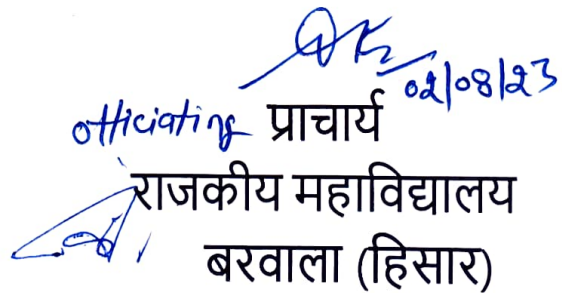 02/08/23
officiating प्राचार्य
राजकीय महाविद्यालय
बरवाला (हिसार)